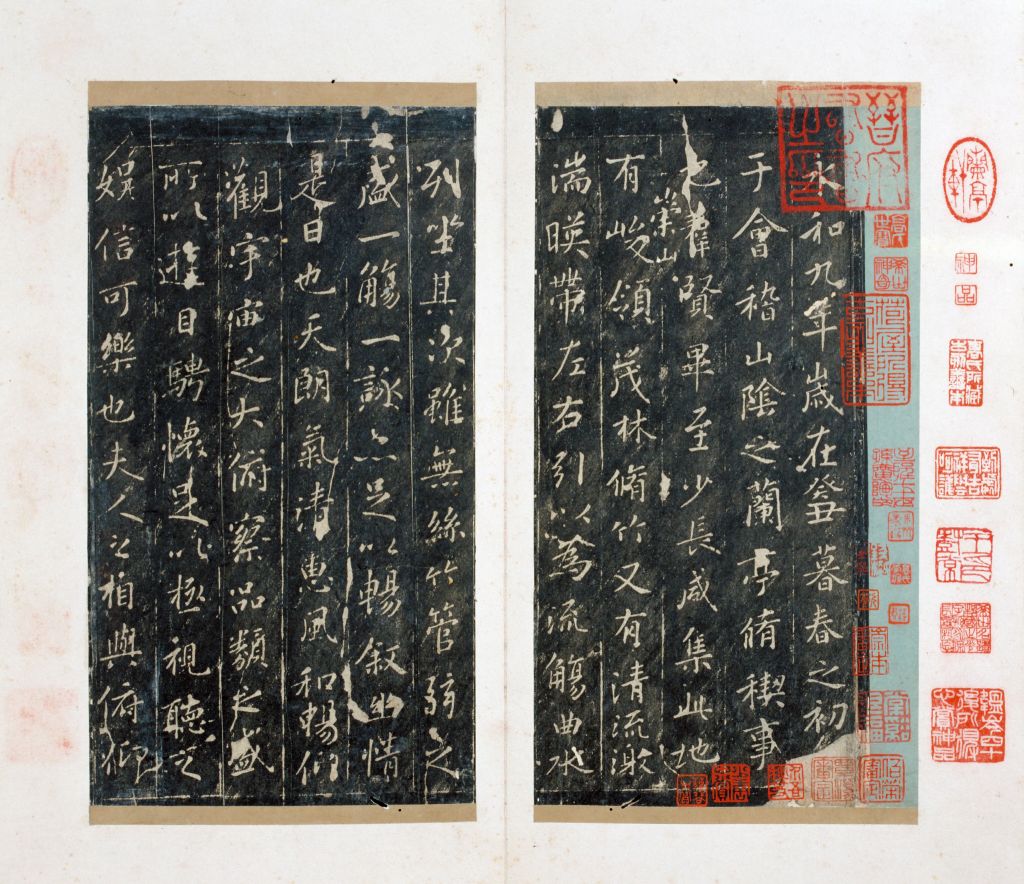 永和九年歲在癸丑暮春之初
于會稽山陰之蘭亭脩稧事
也羣賢畢至少長咸集此地
有崇山峻領茂林脩竹又有清流激
湍暎帶左右引以為流觴曲水
列坐其次雖無絲竹管弦之
盛一觴一詠亦足以暢敘幽情
是日也天朗氣清惠風和暢仰
觀宇宙之大俯察品類之盛
所以遊目騁懷足以極視聽之
娛信可樂也夫人之相與俯仰
晉府書畫之印
神品